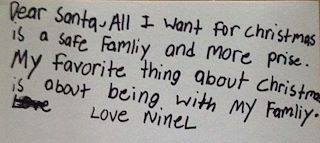 Dear Santa, All I want for christmas
is a safe Famliy and more prise.
My favorite thing about Christma
is about being with My Famliy.
Love Love NineL